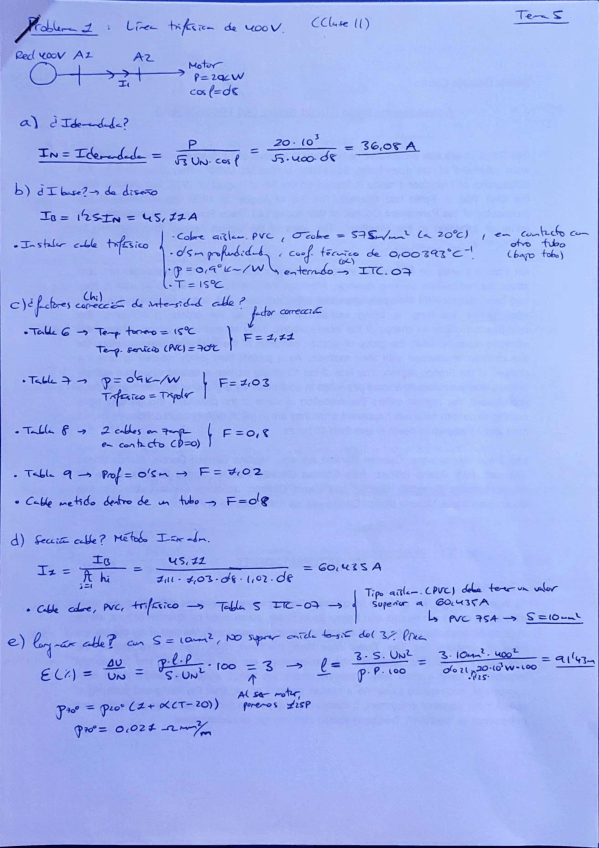 Tema 5
Problema 1 : Línea trifásica de 400V. (Clase 11)
Red 400V A1 A2
I₁
Motor
P=20kW
cosφ=0'8
a) ¿Idemandada?
IN = Idemandada = P / √3 UN·cosφ = 20·10³ / √3·400·0'8 = 36,08 A
b) ¿Ibase? → de diseño
IB = 1'25 IN = 45,11 A
• Instalar cable trifásico
· Cobre aislam. PVC, σcobre = 57 Sm/mm² (a 20ºC), en contacto con otro tubo (bajo tubo)
· 0'5m profundidad, coef. térmico de 0,00393ºC⁻¹
(α)
· ρ = 0,9ºK·m/W enterrado → ITC.07
· T = 15ºC
(hi)
c) ¿factores corrección de intensidad cable?
factor corrección
• Tabla 6 → Temp terreno = 15ºC
Temp. servicio (PVC) = 70ºC
F = 1,11
• Tabla 7 → ρ = 0'9 K·m/W
Trifásico = Tripolar
F = 1,03
• Tabla 8 → 2 cables en
en contacto (D=0)
F = 0,8
• Tabla 9 → Prof = 0'5m → F = 1,02
• Cable metido dentro de un tubo → F=0'8
d) Sección cable? Método Imáx adm.
Iz = IB / π hi i=1 = 45,11 / 1,11·1,03·0'8·1,02·0'8 = 60,435 A
• Cable cobre, PVC, trifásico → Tabla 5 ITC-07 →
Tipo aislam. (PVC) debe tener un valor
superior a 60,435A
↳ PVC 75A → S=10mm²
e) long máx cable? con S=10mm², NO superar caída tensión del 3% línea
ε(%) = ΔU / UN = ρ·l·P / S·UN² ·100 = 3 → l = 3·S·UN² / ρ·P·100 = 3·10mm²·400² / 0'021·20·10³W·100 ·1'25 = 91'43m
Al ser motor,
ponemos 1'25P
ρ70º = ρ20º (1+α(T-20))
ρ70º = 0.021 Ωmm²/m